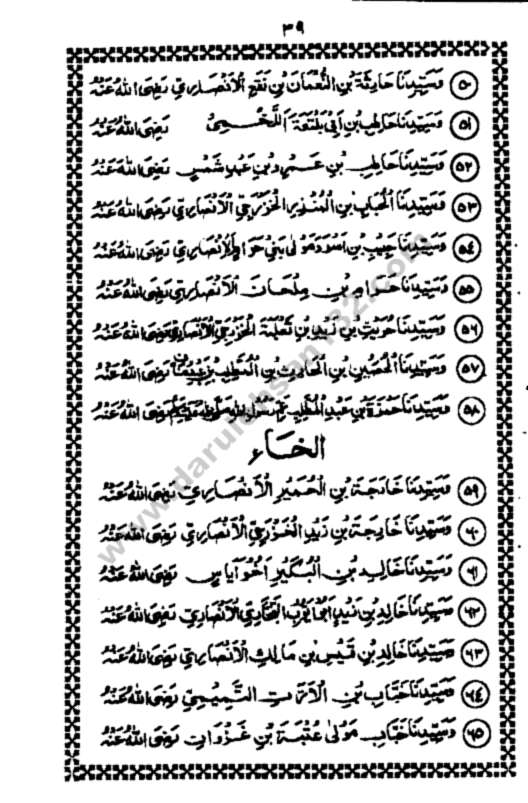 ۳۹
۵۰ وَسَيِّدِنَا حَارِثَة بْنِ النُّعْمَانِ بْنِ نَفْعِ الْأَنْصَارِيِّ رَضِيَ اللهُ عَنْهُ
۵۱ وَسَيِّدِنَا حَاطِبِ بْنِ أَبِي بَلْتَعَةَ اللَّخْمِيِّ رَضِيَ اللهُ عَنْهُ
۵۲ وَسَيِّدِنَا حَاطِبِ بْنِ عَمْرِو بْنِ عَبْدِ شَمْسٍ رَضِيَ اللهُ عَنْهُ
۵۳ وَسَيِّدِنَا الْحُبَابِ بْنِ الْمُنْذِرِ الْخَزْرَجِيِّ الْأَنْصَارِيِّ رَضِيَ اللهُ عَنْهُ
۵۴ وَسَيِّدِنَا حَبِيبِ بْنِ أَسْوَدَ مَوْلَى بَنِي حَرَامِ الْأَنْصَارِيِّ رَضِيَ اللهُ عَنْهُ
۵۵ وَسَيِّدِنَا حَرَامِ بْنِ مِلْحَانَ الْأَنْصَارِيِّ رَضِيَ اللهُ عَنْهُ
۵۶ وَسَيِّدِنَا حُرَيْثِ بْنِ زَيْدِ بْنِ ثَعْلَبَةَ الْخَزْرَجِيِّ الْأَنْصَارِيِّ رَضِيَ اللهُ عَنْهُ
۵۷ وَسَيِّدِنَا الْحُصَيْنِ بْنِ الْحَارِثِ بْنِ الْمُطَّلِبِ رَضِيَ اللهُ عَنْهُ
۵۸ وَسَيِّدِنَا حَمْزَةَ بْنِ عَبْدِ الْمُطَّلِبِ عَمِّ رَسُولِ اللهِ رَضِيَ اللهُ عَنْهُ
الخاء
۵۹ وَسَيِّدِنَا خَارِجَةَ بْنِ الْحُمَيْرِ الْأَنْصَارِيِّ رَضِيَ اللهُ عَنْهُ
۶۰ وَسَيِّدِنَا خَارِجَةَ بْنِ زَيْدِ الْخَزْرَجِيِّ الْأَنْصَارِيِّ رَضِيَ اللهُ عَنْهُ
۶۱ وَسَيِّدِنَا خَالِدِ بْنِ الْبُكَيْرِ أَخُو أَيَاسٍ رَضِيَ اللهُ عَنْهُ
۶۲ وَسَيِّدِنَا خَالِدِ بْنِ زَيْدِ النَّجَّارِيِّ الْأَنْصَارِيِّ رَضِيَ اللهُ عَنْهُ
۶۳ وَسَيِّدِنَا خَالِدِ بْنِ قَيْسِ بْنِ مَالِكِ الْأَنْصَارِيِّ رَضِيَ اللهُ عَنْهُ
۶۴ وَسَيِّدِنَا خَبَّابِ بْنِ الْأَرَتِّ التَّمِيمِيِّ رَضِيَ اللهُ عَنْهُ
۶۵ وَسَيِّدِنَا خَبَّابِ مَوْلَى عُتْبَةَ بْنِ غَزْوَانَ رَضِيَ اللهُ عَنْهُ